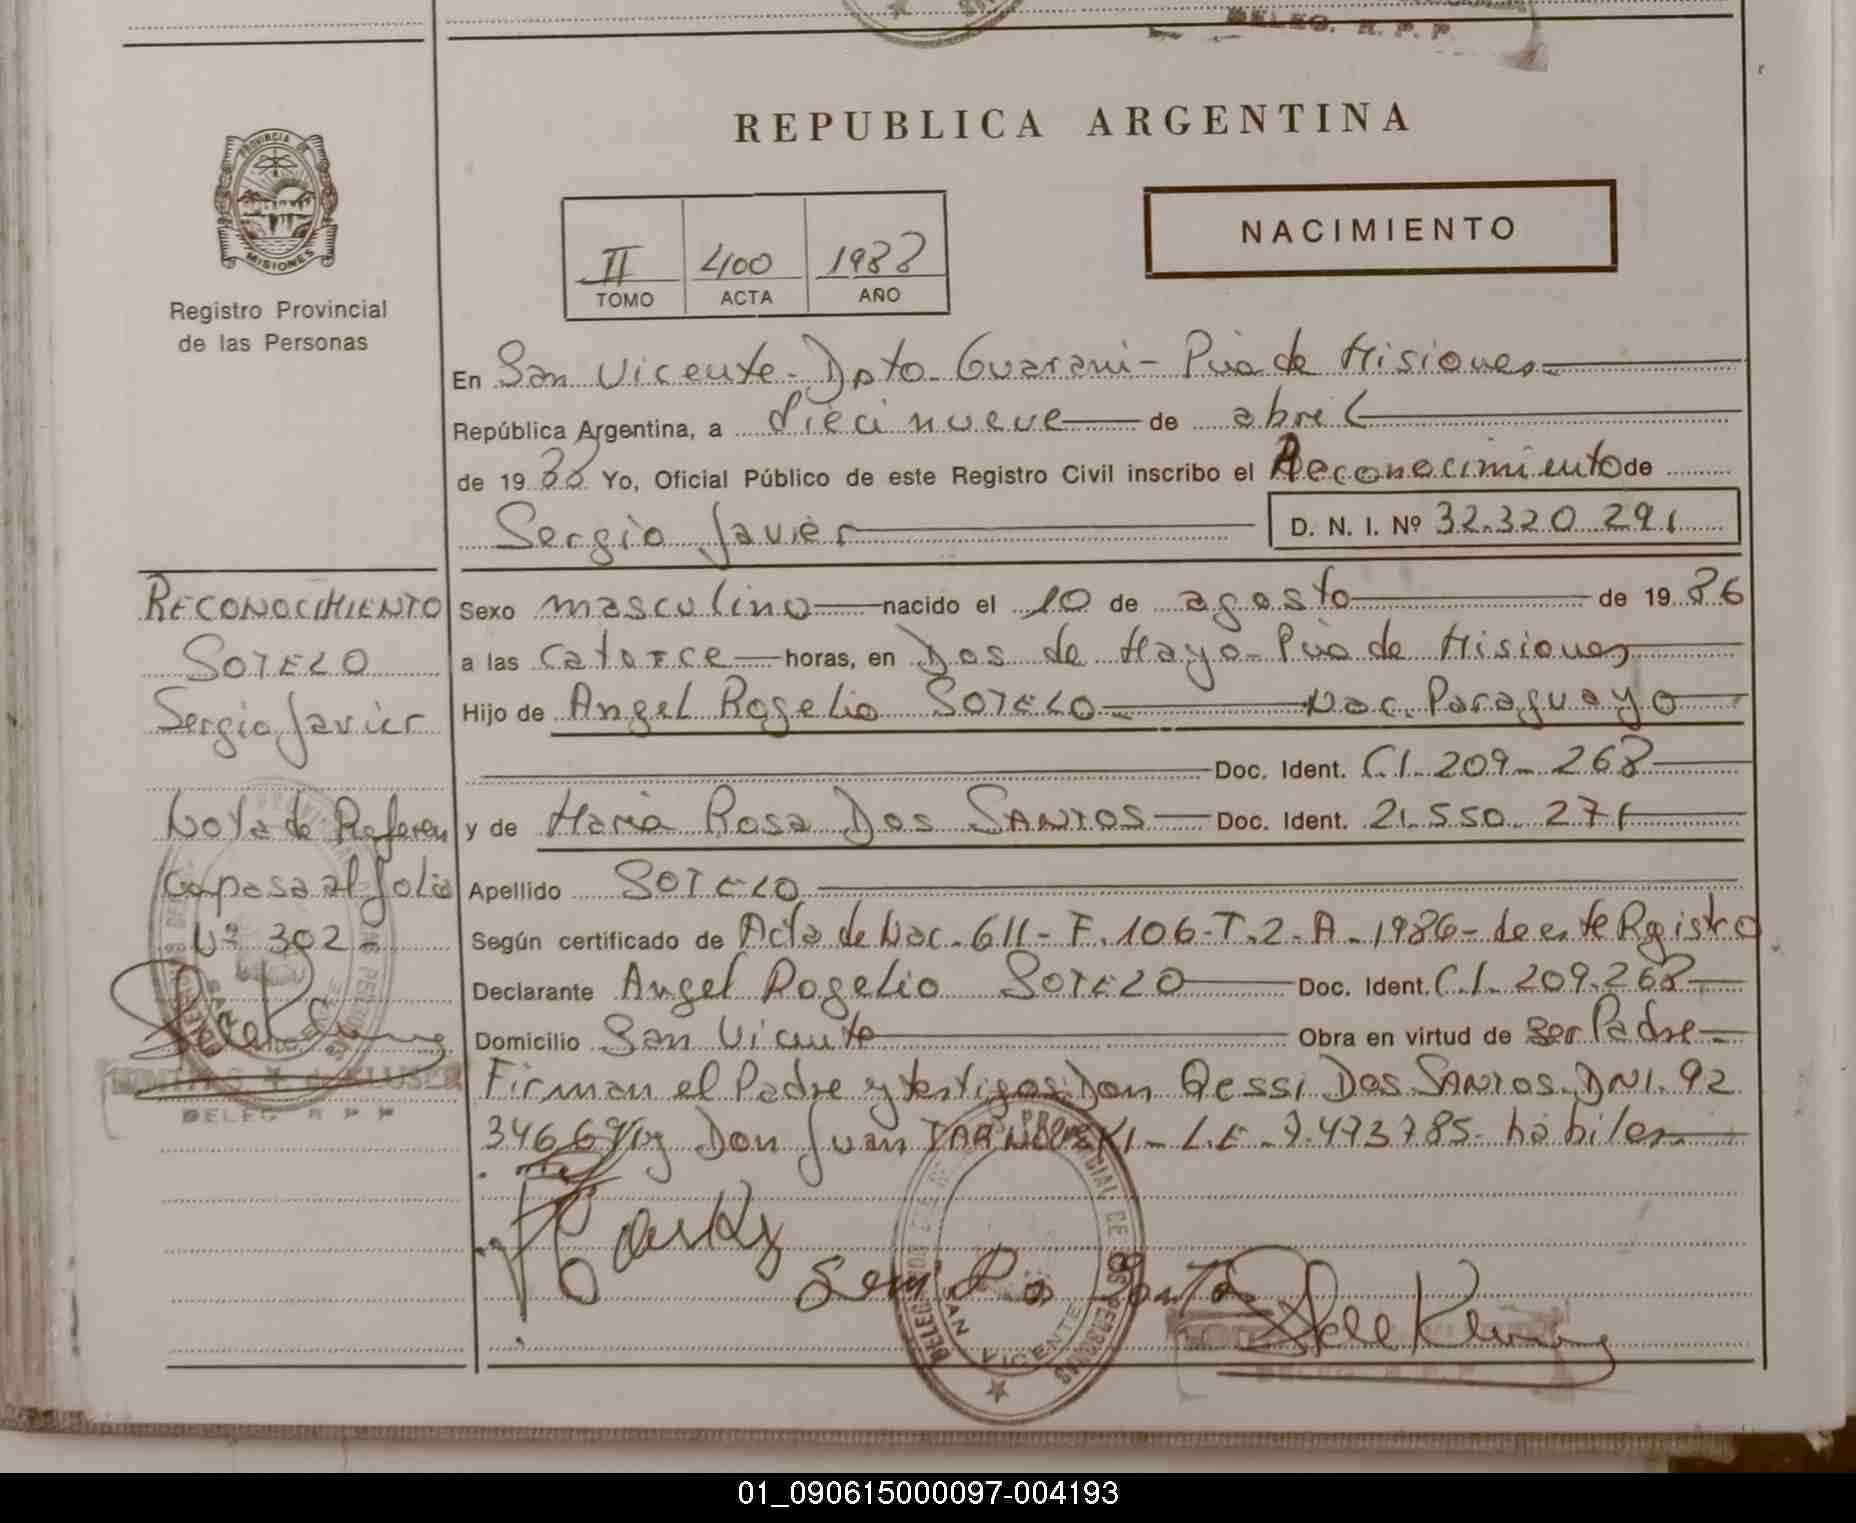 DELEG. R. P. P.
REPUBLICA ARGENTINA
PROVINCIA DE
MISIONES
Registro Provincial
de las Personas
NACIMIENTO
II 400 1988
TOMO ACTA AÑO
En San Vicente - Dpto - Guarani - Pcia de Misiones
República Argentina, a diecinueve de abril
de 1988 Yo, Oficial Público de este Registro Civil inscribo el Reconocimiento de
Sergio Javier D. N. I. Nº 32.320.291
RECONOCIMIENTO
SOTELO
Sergio Javier
Nota de Referen
cia pasa al folio
Nº 302 -
DELEG R P P
Sexo masculino nacido el 10 de agosto de 1986
a las catorce horas, en Dos de Mayo - Pcia de Misiones
Hijo de Angel Rogelio SOTELO - Nac. Paraguayo
Doc. Ident. C.I. 209.268
y de Maria Rosa Dos SANTOS Doc. Ident. 21.550.271
Apellido SOTELO
Según certificado de Acta de Nac. 611 - F. 106 - T. 2 - A - 1986 - de este Registro
Declarante Angel Rogelio SOTELO Doc. Ident. C.I. 209.268
Domicilio San Vicente Obra en virtud de ser Padre -
Firman el Padre y testigos: Don Qessi Dos SANTOS - DNI. 92
346 y Don Juan - L.E - 7.473.785 - habiles
SAN VICENTE
01_090615000097-004193